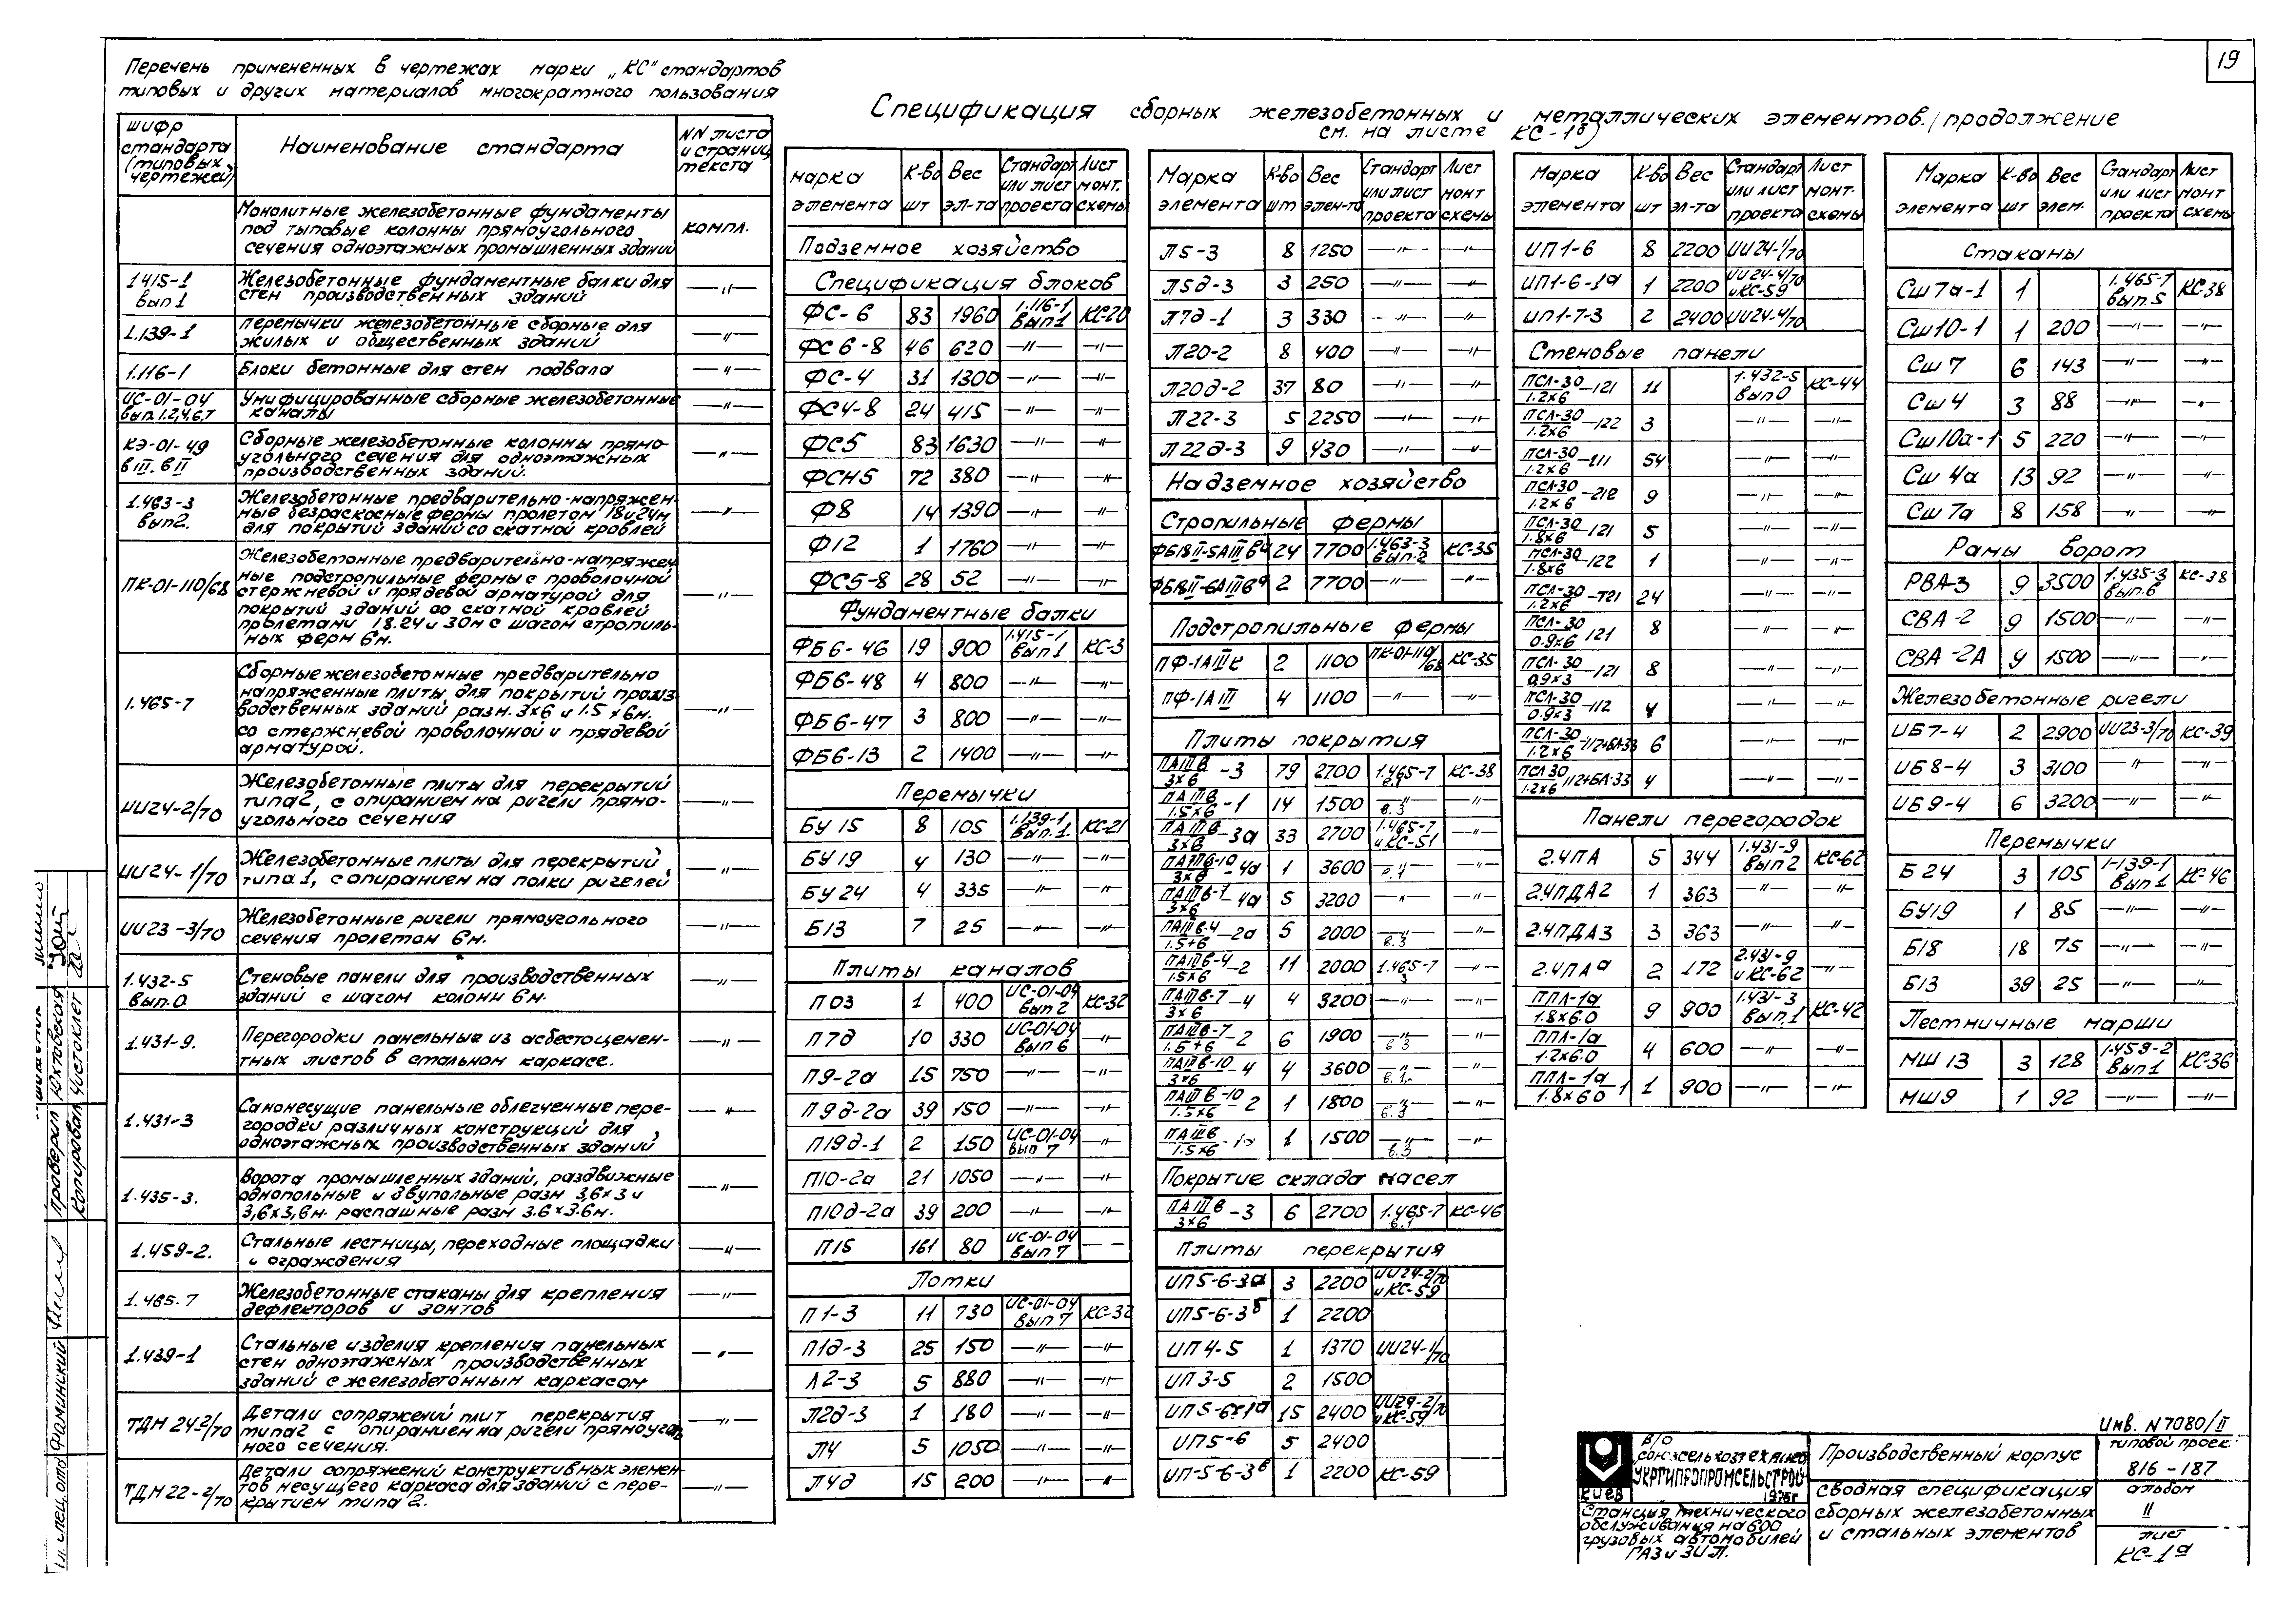 19
Перечень примененных в чертежах марки „КС" стандартов
типовых и других материалов многократного пользования
Спецификация сборных железобетонных и металлических элементов. (продолжение
см. на листе КС-1б)
шифр стандарта (типовых чертежей) Наименование стандарта NN листа и страниц текста
Монолитные железобетонные фундаменты
под типовые колонны прямоугольного
сечения одноэтажных промышленных зданий
компл.
1415-1 вып 1
Железобетонные фундаментные балки для
стен производственных зданий —"—
1.139-1
перемычки железобетонные сборные для
жилых и общественных зданий —"—
1.116-1 Блоки бетонные для стен подвала —"—
ИС-01-04 вып.1.2,4,6,7
Унифицированные сборные железобетонные
каналы —"—
КЭ-01-49 вIII. вII
Сборные железобетонные колонны прямо-
угольного сечения для одноэтажных
производственных зданий. —"—
1.463-3 вып2.
Железобетонные предварительно-напряжен-
ные безраскосные фермы пролетом 18и24м
для покрытий зданий со скатной кровлей —"—
ПК-01-110/68
Железобетонные предварительно-напряжен
ные подстропильные фермы с проволочной
стержневой и прядевой арматурой для
покрытий зданий со скатной кровлей
пролетами 18.24 и 30м с шагом стропиль-
ных ферм 6м. —"—
1.465-7
Сборные железобетонные предварительно
напряженные плиты для покрытий произ-
водственных зданий разм. 3×6 и 1.5×6м.
со стержневой проволочной и прядевой
арматурой. —"—
ИИ24-2/70
Железобетонные плиты для перекрытий
типа2, с опиранием на ригели прямо-
угольного сечения —"—
ИИ24-1/70
Железобетонные плиты для перекрытий
типа 1, с опиранием на полки ригелей —"—
ИИ23-3/70
Железобетонные ригели прямоугольного
сечения пролетом 6м. —"—
1.432-5 вып.0
Стеновые панели для производственных
зданий с шагом колонн 6м. —"—
1.431-9.
Перегородки панельные из асбестоцемен-
тных листов в стальном каркасе. —"—
1.431-3
Самонесущие панельные облегченные пере-
городки различных конструкций для
одноэтажных производственных зданий —"—
1.435-3.
Ворота промышленных зданий, раздвижные
однопольные и двупольные разм 3,6×3 и
3,6×3,6м. распашные разм 3.6×3.6м. —"—
1.459-2.
Стальные лестницы, переходные площадки
и ограждения —"—
1.465-7
Железобетонные стаканы для крепления
дефлекторов и зонтов —"—
1.439-1
Стальные изделия крепления панельных
стен одноэтажных производственных
зданий с железобетонным каркасом —"—
ТДМ 24-2/70
Детали сопряжений плит перекрытия
типа2 с опиранием на ригели прямоуголь
ного сечения. —"—
ТДМ 22-2/70
Детали сопряжений конструктивных элемен-
тов несущего каркаса для зданий с пере-
крытием типа 2. —"—
марка элемента К-во шт Вес эл-та Стандарт или лист проекта Лист монт. схемы
Подземное хозяйство
Спецификация блоков
ФС-6 83 1960 1.116-1 вып1 КС-20
ФС6-8 46 620 —"— —"—
ФС-4 31 1300 —"— —"—
ФС4-8 24 415 —"— —"—
ФС5 83 1630 —"— —"—
ФСН5 72 380 —"— —"—
Ф8 14 1390 —"— —"—
Ф12 1 1760 —"— —"—
ФС5-8 28 52 —"— —"—
Фундаментные балки
ФБ6-46 19 900 1.415-1 вып1 КС-3
ФБ6-48 4 800 —"— —"—
ФБ6-47 3 800 —"— —"—
ФБ6-13 2 1400 —"— —"—
Перемычки
БУ15 8 105 1.139-1 вып.1. КС-21
БУ19 4 130 —"— —"—
БУ24 4 335 —"— —"—
Б13 7 25 —"— —"—
Плиты каналов
П03 1 400 ИС-01-04 вып 2 КС-32
П7д 10 330 ИС-01-04 вып 6 —"—
П9-2а 15 750 —"— —"—
П9д-2а 39 150 —"— —"—
П19д-1 2 150 ИС-01-04 вып 7 —"—
П10-2а 21 1050 —"— —"—
П10д-2а 39 200 —"— —"—
П15 161 80 ИС-01-04 вып 7 — —
Лотки
П1-3 11 730 ИС-01-04 вып 7 КС-32
П1д-3 25 150 —"— —"—
Л2-3 5 880 —"— —"—
Л2д-3 1 180 —"— —"—
Л4 5 1050 —"— —"—
Л4д 15 200 —"— —"—
Марка элемента К-во шт Вес элем-та Стандарт или лист проекта Лист монт схемы
Л5-3 8 1250 —"— —"—
Л5д-3 3 250 —"— —"—
Л7д-1 3 330 —"— —"—
Л20-2 8 400 —"— —"—
Л20д-2 37 80 —"— —"—
Л22-3 5 2250 —"— —"—
Л22д-3 9 430 —"— —"—
Надземное хозяйство
Стропильные фермы
ФБ18II-5АIIIвд 24 7700 1.463-3 вып.2 КС-35
ФБ18II-6АIIIвд 2 7700 —"— —"—
Подстропильные фермы
ПФ-1АIIIК 2 1100 ПК-01-110/68 КС-35
ПФ-1АIII 4 1100 —"— —"—
Плиты покрытия
ПАIIIв/3×6 -3 79 2700 1.465-7 в.1 КС-38
ПАIIIв/1.5×6 -1 14 1500 —"— в.3 —"—
ПАIIIв/3×6 -3а 33 2700 1.465-7 и КС-51 —"—
ПАIIIв-10/3×6 -4а 1 3600 —"— —"—
ПАIIIв-7/3×6 -4а 5 3200 —"— —"—
ПАIIIв-4/1.5+6 -2а 5 2000 —"— в.3 —"—
ПАIIIв-4/1.5×6 -2 11 2000 1.465-7 3 —"—
ПАIIIв-7/3×6 -4 4 3200 —"— —"—
ПАIIIв-7/1.5+6 -2 6 1900 —"— в 3 —"—
ПАIIIв-10/3×6 -4 4 3600 —"— в.1. —"—
ПАIIIв-10/1.5×6 -2 1 1800 —"— в.3 —"—
ПАIIIв/1.5×6 1 1500 —"— в.3 —"—
Покрытие склада масел
ПАIIIв/3×6 -3 6 2700 1.465-7 в.1 КС-46
Плиты перекрытия
ИП5-6-3а 3 2200 ИИ24-2/70 и КС-59
ИП5-6-3б 1 2200
ИП4-5 1 1370 ИИ24-1/70
ИП3-5 2 1500
ИП5-6-1а 15 2400 ИИ24-2/70 и КС-59
ИП5-6 5 2400
ИП-5-6-3в 1 2200 КС-59
Марка элемента К-во шт Вес эл-та Стандарт или лист проекта Лист монт. схемы
ИП1-6 8 2200 ИИ24-1/70
ИП1-6-1а 1 2200 ИИ24-4/70 и КС-59
ИП1-7-3 2 2400 ИИ24-4/70
Стеновые панели
ПСЛ-30/1.2×6 -121 11 1.432-5 вып 0 КС-44
ПСЛ-30/1.2×6 -122 3 —"— —"—
ПСЛ-30/1.2×6 -211 54 —"— —"—
ПСЛ-30/1.2×6 -212 9 —"— —"—
ПСЛ-30/1.8×6 -121 5 —"— —"—
ПСЛ-30/1.8×6 -122 1 —"— —"—
ПСЛ-30/1.2×6 -Т21 24 —"— —"—
ПСЛ-30/0.9×6 121 8 —"— —"—
ПСЛ-30/0.9×3 -121 8 —"— —"—
ПСЛ-30/0.9×3 -112 4 —"— —"—
ПСЛ-30/1.2×6 -112+БЛ-33 6 —"— —"—
ПСЛ 30/1.2×6 112+БЛ-33 4 —"— —"—
Панели перегородок
2.4ПА 5 344 1.431-9 вып 2 КС-62
2.4ПДА2 1 363 —"— —"—
2.4ПДА3 3 363 —"— —"—
2.4ПАа 2 172 2.431-9 и КС-62 —"—
ППЛ-1а/1.8×6.0 9 900 1.431-3 вып.1 КС-42
ППЛ-1а/1.2×6.0 4 600 —"— —"—
ППЛ-1а/1.8×6.0 1 1 900 —"— —"—
Марка элемента К-во шт Вес элем. Стандарт или лист проекта Лист монт схемы
Стаканы
Сш7а-1 1 1.465-7 вып.5 КС-38
Сш10-1 1 200 —"— —"—
Сш7 6 143 —"— —"—
Сш4 3 88 —"— —"—
Сш10а-1 5 220 —"— —"—
Сш4а 13 92 —"— —"—
Сш7а 8 158 —"— —"—
Рамы ворот
РВА-3 9 3500 1.435-3 вып.6 КС-38
СВА-2 9 1500 —"— —"—
СВА-2А 9 1500 —"— —"—
Железобетонные ригели
ИБ7-4 2 2900 ИИ23-3/70 КС-39
ИБ8-4 3 3100 —"— —"—
ИБ9-4 6 3200 —"— —"—
Перемычки
Б24 3 105 1-139-1 вып 1 КС-46
БУ19 1 85 —"— —"—
Б18 18 75 —"— —"—
Б13 39 25 —"— —"—
Лестничные марши
МШ13 3 128 1.459-2 вып 1 КС-36
МШ9 1 92 —"— —"—
Инв. N7080/II
В/О
Союзсельхозтехника
УКРГИПРОПРОМСЕЛЬСТРОЙ
Киев 1975г
Станция технического
обслуживания на 600
грузовых автомобилей
ГАЗ и ЗИЛ.
Производственный корпус
сводная спецификация
сборных железобетонных
и стальных элементов
типовой проек.
816-187
альбом
II
лист
КС-1а
Гл. спец. отд Фаминский
Проверил Юхтовская
Копировал Чистоклет